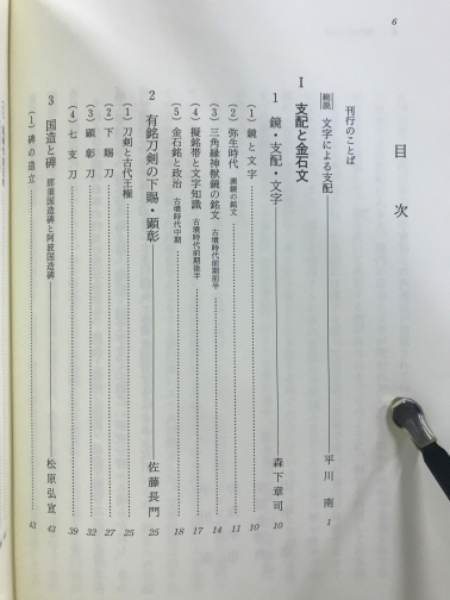 6
目次
刊行のことば
総説 文字による支配 平川 南 1
Ⅰ 支配と金石文
1 鏡・支配・文字 森下章司 10
(1) 鏡と文字 10
(2) 弥生時代 漢鏡の銘文 11
(3) 三角縁神獣鏡の銘文 古墳時代前期前半 14
(4) 擬銘帯と文字知識 古墳時代前期後半 17
(5) 金石銘と政治 古墳時代中期 18
2 有銘刀剣の下賜・顕彰 佐藤長門 25
(1) 刀剣と古代王権 25
(2) 下賜刀 27
(3) 顕彰刀 32
(4) 七支刀 39
3 国造と碑 那須国造碑と阿波国造碑 松原弘宣 43
(1) 碑の造立 43